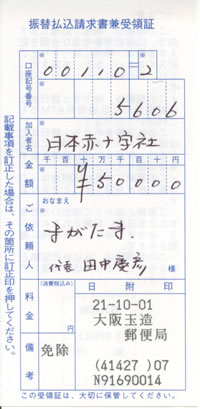 振替払込請求書兼受領証
口座記号番号
00110-2
5606
加入者名
日本赤十字社
金額
千百十万千百十円
¥50000
ご依頼人
おなまえ
すがたま
代表 田中慶彦
様
料金
(消費税込み)
円
日附印
21-10-01
大阪玉造
郵便局
備考
免除
(41427 )07
N91690014
この受領証は、大切に保管してください。
記載事項を訂正した場合は、その箇所に訂正印を押してください。